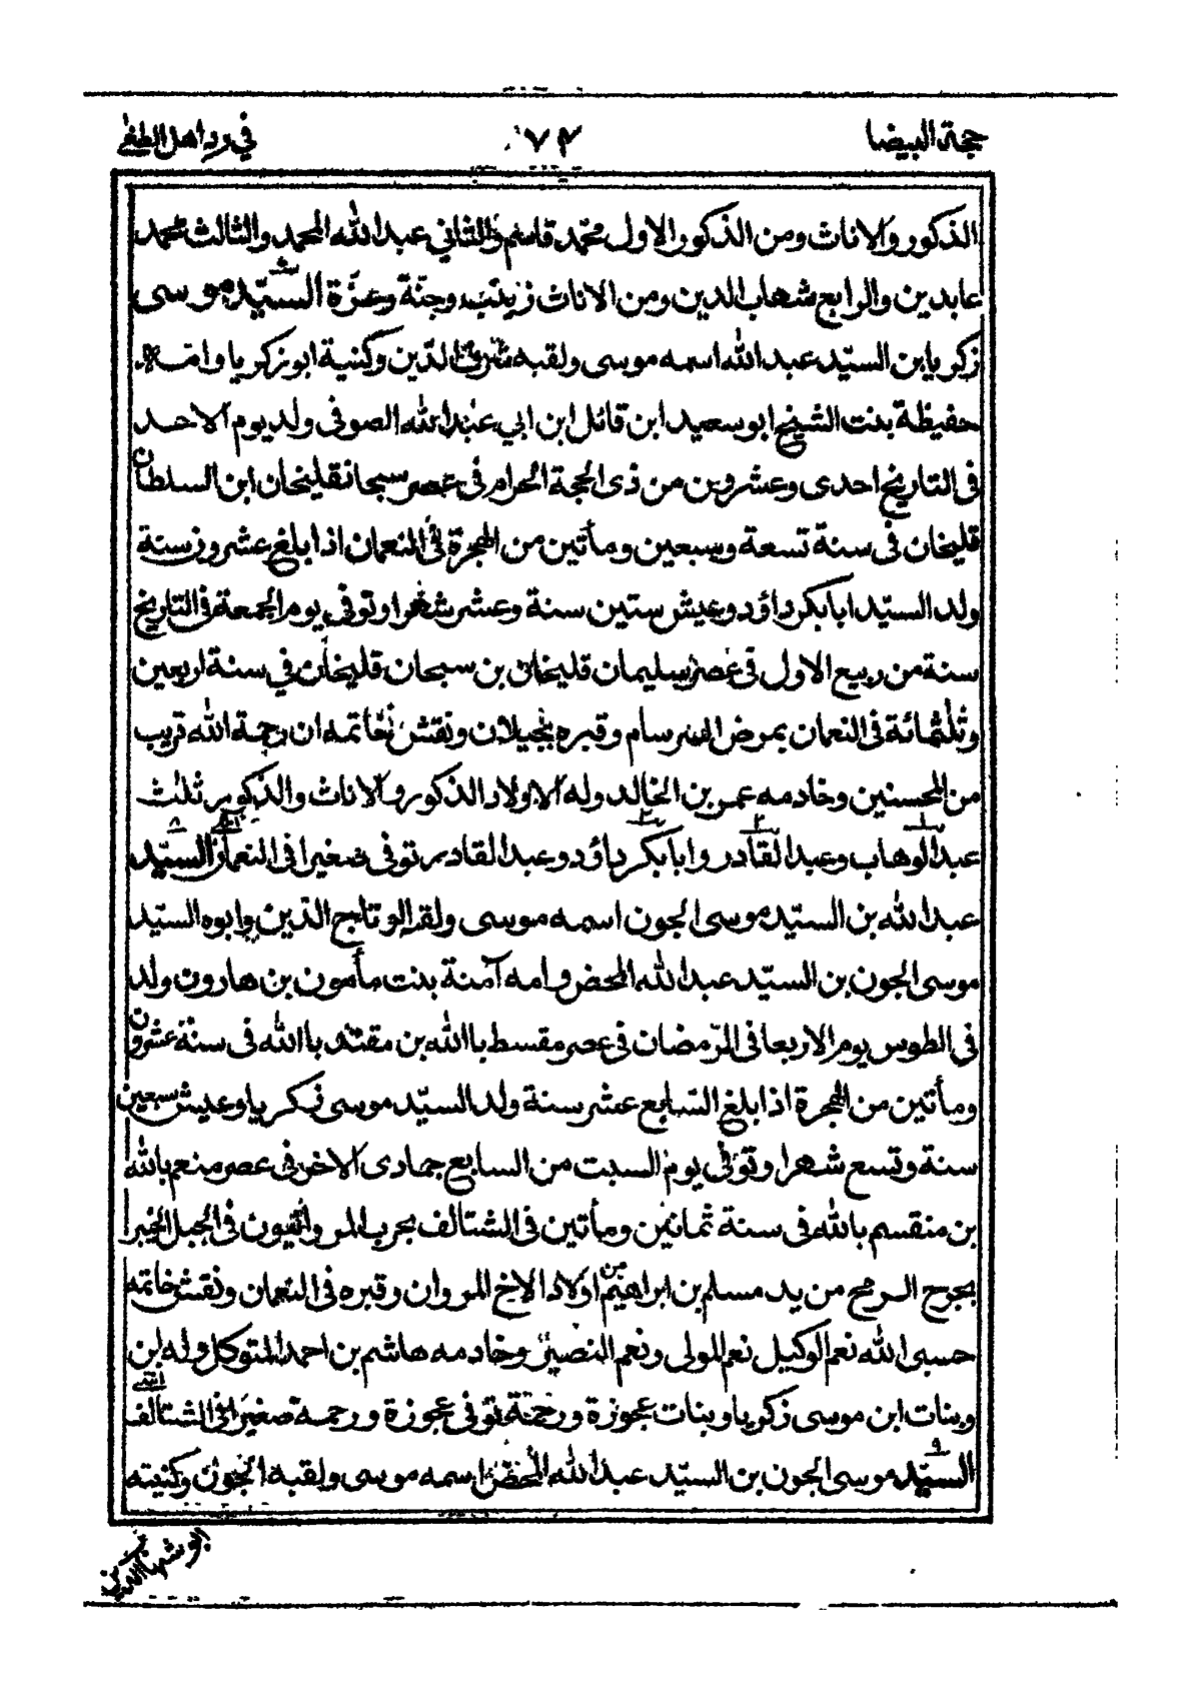 حجة البيضا
٧٢
في رد اهل الطغٰى
الذكور والاناث ومن الذكور الاول محمّد قاسم والثاني عبدالله المحمد والثالث محمد
عابدين والرابع شهاب الدين ومن الاناث زينب وجنّة وعزّة السيّد موسى
زكريا ابن السيّد عبدالله اسمه موسى ولقبه شرف الدّين وكنية ابو زكريا وامه
حفيظة بنت الشيخ ابو سعيد ابن قائل ابن ابي عبدالله الصوفى ولد يوم الاحد
فى التاريخ احدى وعشروين من ذى الحجة الحرام فى عصر سبحانقليخان ابن السلطان
قليخان فى سنة تسعة وسبعين ومأتين من الهجرة فى النعمان اذا بلغ عشرون سنة
ولد السيّد ابابكر داؤد وعيش ستين سنة وعشر شهرا وتوفى يوم الجمعة فى التاريخ
سنة من ربيع الاول فى عصر سليمان قليخان بن سبحان قليخان في سنة اربعين
وثلثمائة فى النعمان بمرض السرسام وقبره بجيلان ونقش خاتمه ان رحمة الله قريب
من المحسنين وخادمه عمر بن الخالد وله الاولاد الذكور والاناث والذكور ثلث
عبدالوهاب وعبدالقادر وابابكر داؤد وعبدالقادر توفى صغيرا فى النعمان السيّد
عبدالله بن السيّد موسى الجون اسمه موسى ولقبه ابو تاج الدّين وابوه السيّد
موسى الجون بن السيّد عبدالله المحض وامه آمنة بنت مأمون بن هارون ولد
فى الطوس يوم الاربعا فى الرّمضان فى عصر مقسط باالله بن مقتد باالله فى سنة عشرون
ومأتين من الهجرة اذا بلغ السّابع عشر سنة ولد السيّد موسى زكريا وعيش سبعين
سنة وتسع شهرا وتوفى يوم السبت من السابع جمادى الاخر فى عصر منعم بالله
بن منقسم بالله فى سنة ثمانين ومأتين فى الشتالف بحرب المروانيون فى الجبل الخبرا
بجرح الرمح من يد مسلم بن ابراهيم من اولاد الاخ المروان وقبره فى النعمان ونقش خاتمه
حسبى الله نعم الوكيل نعم المولى ونعم النصير وخادمه هاشم بن احمد المتوكل وله ابن
وبنات ابن موسى زكريا وبنات عجوزة ورحمة توفى عجوزة ورحمة صغيرا فى الشتالف
السيّد موسى الجون بن السيّد عبدالله المحض اسمه موسى ولقبه الجون وكنيته
ابو شهاب الدين